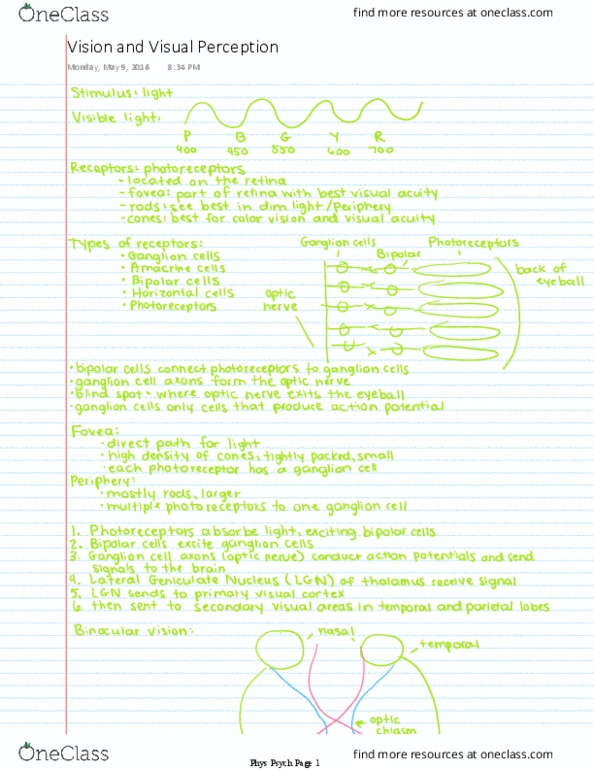 OneClass
find more resources at oneclass.com
Vision and Visual Perception
Monday, May 9, 2016 8:34 PM
Stimulus: light
Visible light:
P B G Y R
400 450 550 600 700
Receptors: photoreceptors
- located on the retina
- fovea: part of retina with best visual acuity
- rods: see best in dim light/periphery
- cones: best for color vision and visual acuity
Types of receptors:
• Ganglion cells
• Amacrine cells
• Bipolar cells
• Horizontal cells
• Photoreceptors
Ganglion cells
Bipolar
Photoreceptors
optic
nerve
back of
eyeball
• bipolar cells connect photoreceptors to ganglion cells
• ganglion cell axons form the optic nerve
• blind spot = where optic nerve exits the eyeball
• ganglion cells only cells that produce action potential
Fovea:
• direct path for light
• high density of cones, tightly packed, small
• each photoreceptor has a ganglion cell
Periphery:
• mostly rods, larger
• multiple photoreceptors to one ganglion cell
1. Photoreceptors absorbe light, exciting bipolar cells
2. Bipolar cells excite ganglion cells
3. Ganglion cell axons (optic nerve) conduct action potentials and send
signals to the brain
4. Lateral Geniculate Nucleus (LGN) of thalamus receive signal
5. LGN sends to primary visual cortex
6. then sent to secondary visual areas in temporal and parietal lobes
Binocular vision:
nasal
temporal
optic
chiasm
OneClass
Phys Psych Page 1
find more resources at oneclass.com